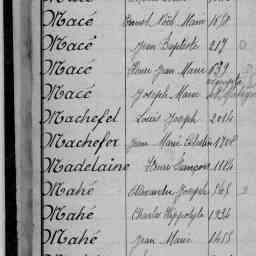 Macé Ernest Noël Marie
Macé Jean Baptiste 217
Macé Pierre Jean Marie 639
Macé Joseph Marie
Machefel Louis Joseph 2014
Machefer Jean Marie 1708
Madelaine Pierre François 1184
Mahé Alexandre Joseph 565
Mahé Charles Hippolyte 1934
Mahé Jean Marie 1415